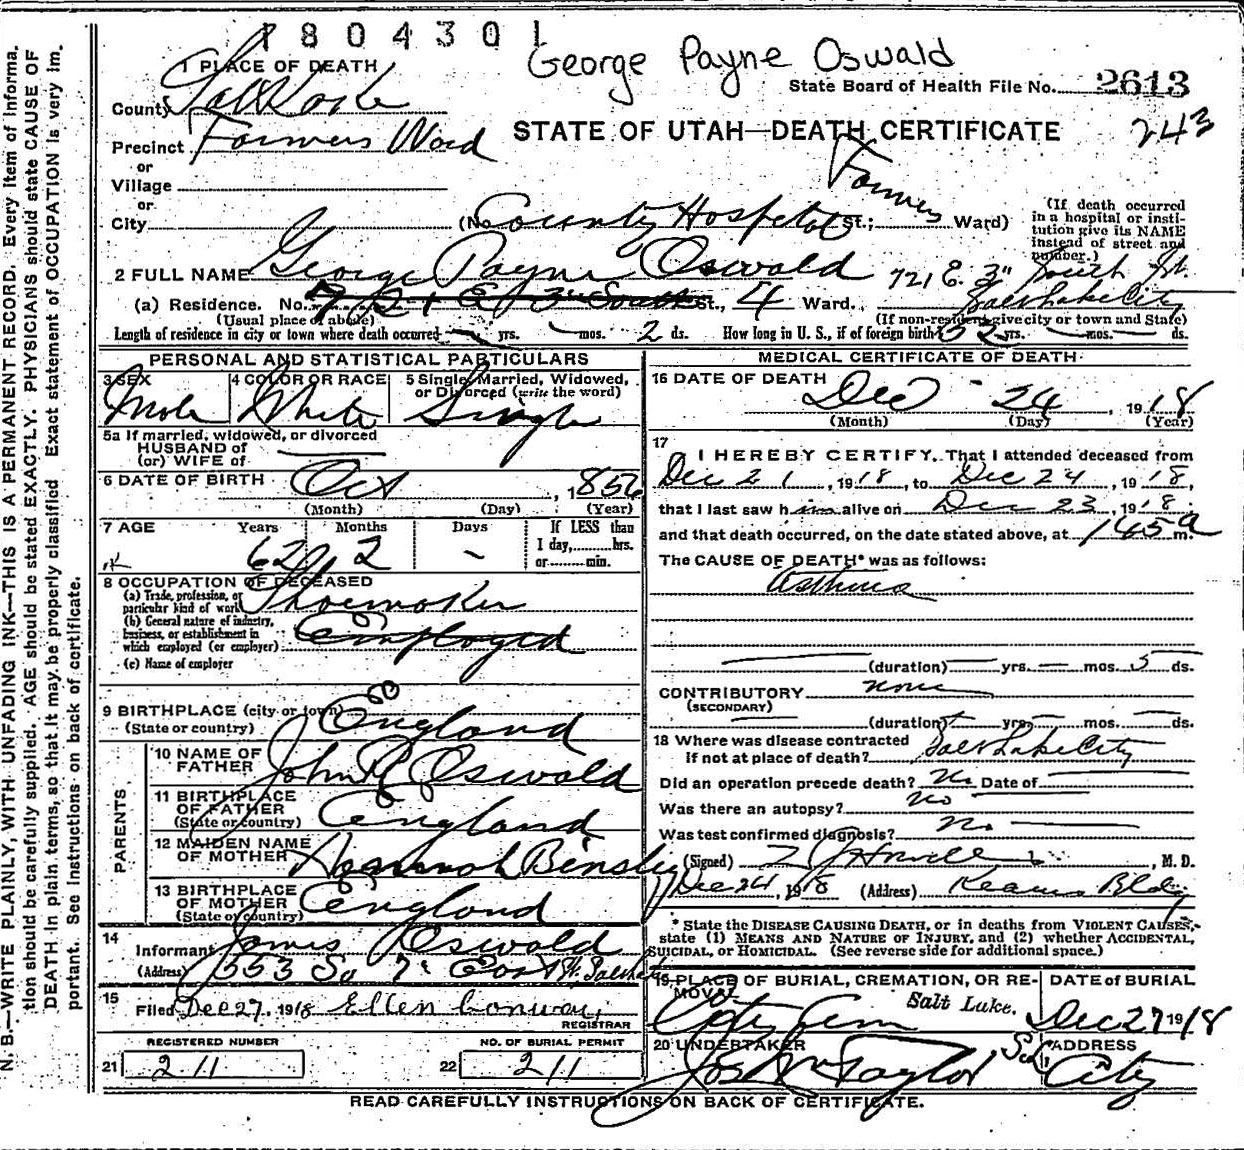 1804301
George Payne Oswald
1 PLACE OF DEATH
State Board of Health File No. 2613
County Salt Lake
STATE OF UTAH—DEATH CERTIFICATE
243
Precinct Farmers Ward
or
Village
or
City (No. County Hospital St.; Farmers Ward)
(If death occurred in a hospital or institution give its NAME instead of street and number.)
2 FULL NAME George Payne Oswald
721 E. 3" South St.
Salt Lake City
(a) Residence. No. 721 E 3" South St., 4 Ward.
(Usual place of abode) (If non-resident give city or town and State)
Length of residence in city or town where death occurred — yrs. — mos. 2 ds. How long in U. S., if of foreign birth 52 yrs. — mos. — ds.
PERSONAL AND STATISTICAL PARTICULARS
3 SEX Male
4 COLOR OR RACE White
5 Single, Married, Widowed, or Divorced (write the word) Single
5a If married, widowed, or divorced
HUSBAND of
(or) WIFE of
6 DATE OF BIRTH Oct , 1856
(Month) (Day) (Year)
7 AGE Years Months Days If LESS than
62 2 — 1 day, hrs.
or min.
8 OCCUPATION OF DECEASED
(a) Trade, profession, or particular kind of work Shoemaker
(b) General nature of industry, business, or establishment in which employed (or employer) Employed
(c) Name of employer
9 BIRTHPLACE (city or town)
(State or country) England
PARENTS
10 NAME OF FATHER John R Oswald
11 BIRTHPLACE OF FATHER (State or country) England
12 MAIDEN NAME OF MOTHER Hannah Binsley
13 BIRTHPLACE OF MOTHER (State or country) England
14
Informant James Oswald
(Address) 553 So 7" East St. Salt Lake
15
Filed Dec 27, 1918 Ellen Conway
REGISTRAR
REGISTERED NUMBER NO. OF BURIAL PERMIT
21 211 22 211
MEDICAL CERTIFICATE OF DEATH
16 DATE OF DEATH Dec 24, 1918
(Month) (Day) (Year)
17
I HEREBY CERTIFY, That I attended deceased from
Dec 21, 1918, to Dec 24, 1918,
that I last saw him alive on Dec 23, 1918,
and that death occurred, on the date stated above, at 145 a m.
The CAUSE OF DEATH* was as follows:
Asthma
(duration) — yrs. — mos. 5 ds.
CONTRIBUTORY none
(SECONDARY)
(duration) — yrs. — mos. — ds.
18 Where was disease contracted
if not at place of death? Salt Lake City
Did an operation precede death? No Date of
Was there an autopsy? no
Was test confirmed diagnosis? No
(Signed) , M. D.
Dec 24, 1918 (Address) Kearns Bldg
* State the DISEASE CAUSING DEATH, or in deaths from VIOLENT CAUSES,
state (1) MEANS AND NATURE OF INJURY, and (2) whether ACCIDENTAL,
SUICIDAL, or HOMICIDAL. (See reverse side for additional space.)
19 PLACE OF BURIAL, CREMATION, OR REMOVAL
City Cem Salt Lake.
DATE of BURIAL
Dec 27 1918
20 UNDERTAKER
Jos Wm Taylor
ADDRESS
S L City
READ CAREFULLY INSTRUCTIONS ON BACK OF CERTIFICATE.
N. B.—WRITE PLAINLY, WITH UNFADING INK—THIS IS A PERMANENT RECORD. Every item of informa-
tion should be carefully supplied. AGE should be stated EXACTLY. PHYSICIANS should state CAUSE OF
DEATH in plain terms, so that it may be properly classified. Exact statement of OCCUPATION is very im-
portant. See instructions on back of certificate.